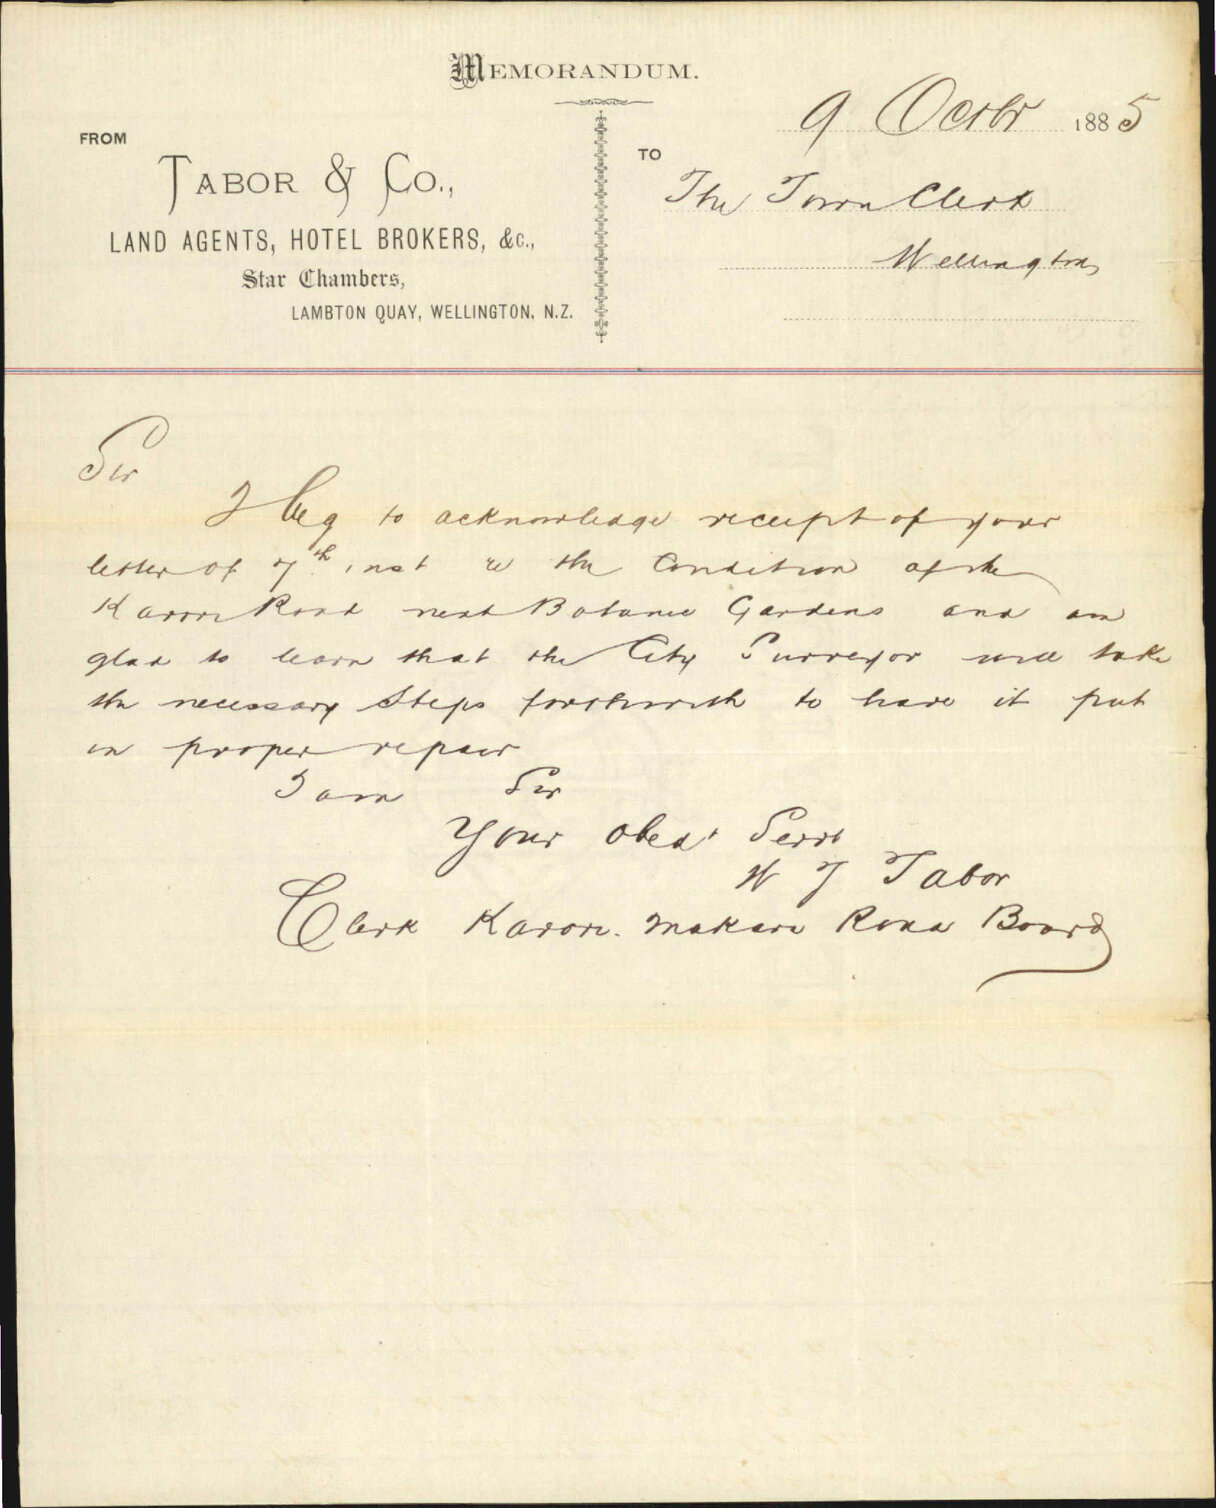 MEMORANDUM.
9 Octbr 1885
FROM
TABOR & CO.,
LAND AGENTS, HOTEL BROKERS, &c.,
Star Chambers,
LAMBTON QUAY, WELLINGTON, N.Z.
TO
The Town Clerk
Wellington
Sir
I beg to acknowledge receipt of your
letter of 7th inst re the Condition of the
Karori Road next Botanic Gardens and am
glad to learn that the City Surveyor will take
the necessary Steps forthwith to have it put
in proper repair
I am Sir
Your obedt Servt
W J Tabor
Clerk Karori. Makara Road Board